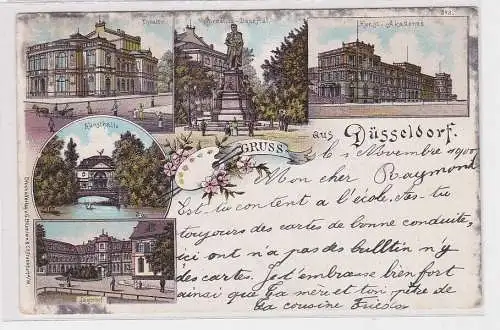 Theater.
Cornelius-Denkmal
Kunst-Akademie
Kunsthalle
GRUSS
aus Düsseldorf.
le 1 Novembre 1900
Mon cher Raymond
Est-tu content a l'école, as-tu
toujours des cartes de bonne conduite,
ici ont n'a pas des bulltin n'y
des cartes. Je t'embrasse bien fort
ainsi que ta mère et ton père de
ta cousine